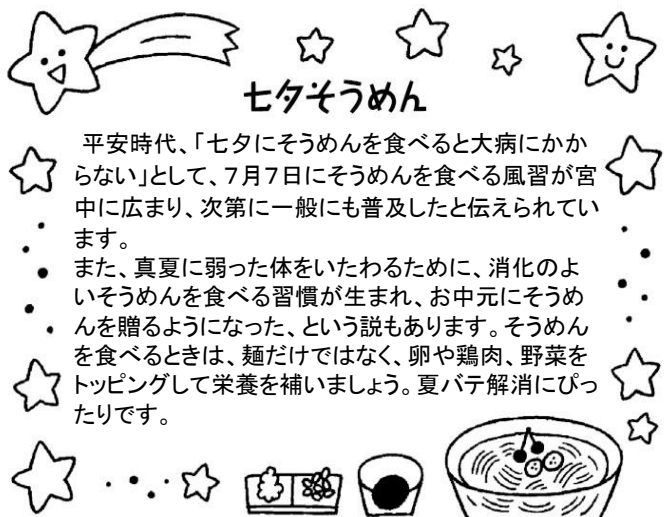 七夕そうめん
平安時代、「七夕にそうめんを食べると大病にかか
らない」として、７月７日にそうめんを食べる風習が宮
中に広まり、次第に一般にも普及したと伝えられてい
ます。
また、真夏に弱った体をいたわるために、消化のよ
いそうめんを食べる習慣が生まれ、お中元にそうめ
んを贈るようになった、という説もあります。そうめん
を食べるときは、麺だけではなく、卵や鶏肉、野菜を
トッピングして栄養を補いましょう。夏バテ解消にぴっ
たりです。